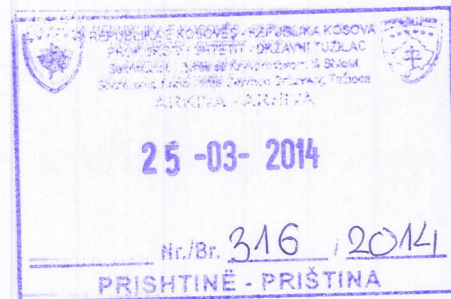 REPUBLIKA E KOSOVËS - REPUBLIKA KOSOVA
PROKURORI I SHTETIT - DRŽAVNI TUŽILAC
ARKIVA - ARHIVA
25 -03- 2014
Nr./Br. 316 / 2014
PRISHTINË - PRIŠTINA